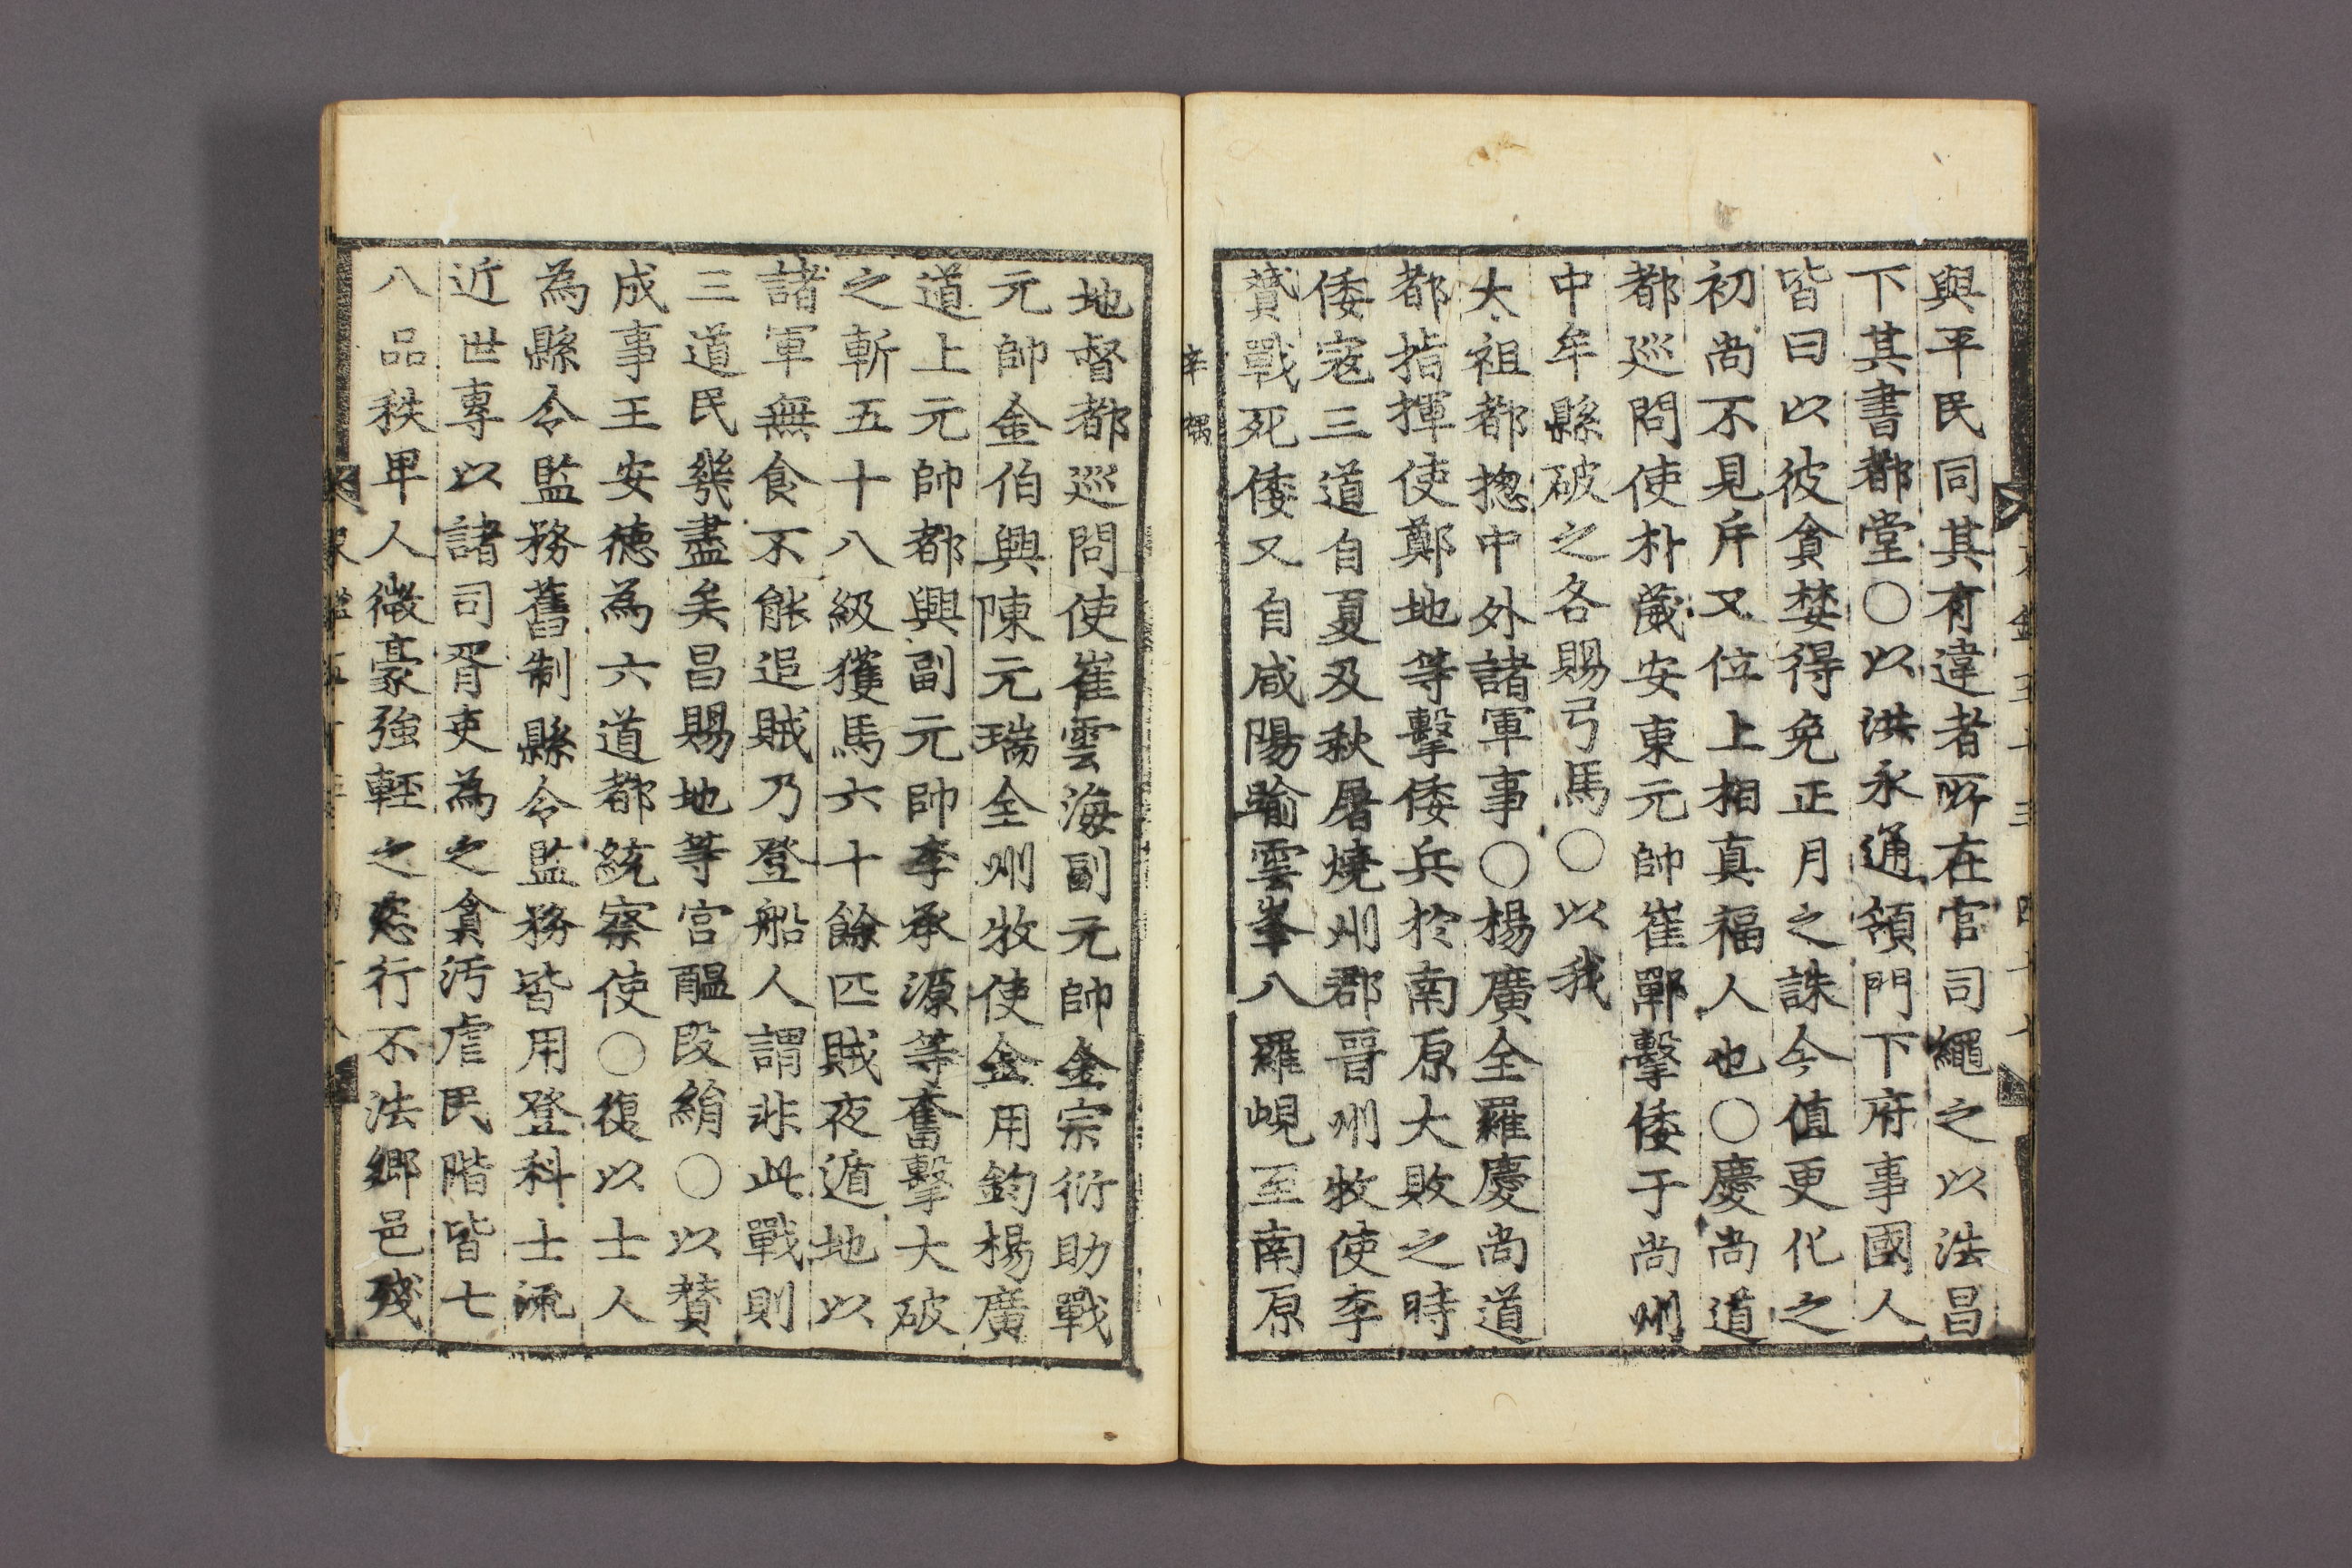 與平民同其有違者所在官司繩之以法昌
下其書都堂○以洪永通領門下府事國人
皆曰以彼貪婪得免正月之誅今值更化之
初尚不見斥又位上相真福人也○慶尚道
都巡問使朴葳安東元帥崔鄲擊倭于尚州
中牟縣破之各賜弓馬○以我
太祖都摠中外諸軍事○楊廣全羅慶尚道
都指揮使鄭地等擊倭兵於南原大敗之時
倭寇三道自夏及秋屠燒州郡晉州牧使李
贇戰死倭又自咸陽踰雲峯八羅峴至南原
辛禑
地督都巡問使崔雲海副元帥金宗衍助戰
元帥金伯興陳元瑞全州牧使金用鈞楊廣
道上元帥都興副元帥李承源等奮擊大破
之斬五十八級獲馬六十餘匹賊夜遁地以
諸軍無食不能追賊乃登船人謂非此戰則
三道民幾盡矣昌賜地等宮醞段絹○以贊
成事王安德為六道都統察使○復以士人
為縣令監務舊制縣令監務皆用登科士流
近世專以諸司胥吏為之貪汚虐民階皆七
八品秩卑人微豪強輕之恣行不法鄉邑殘